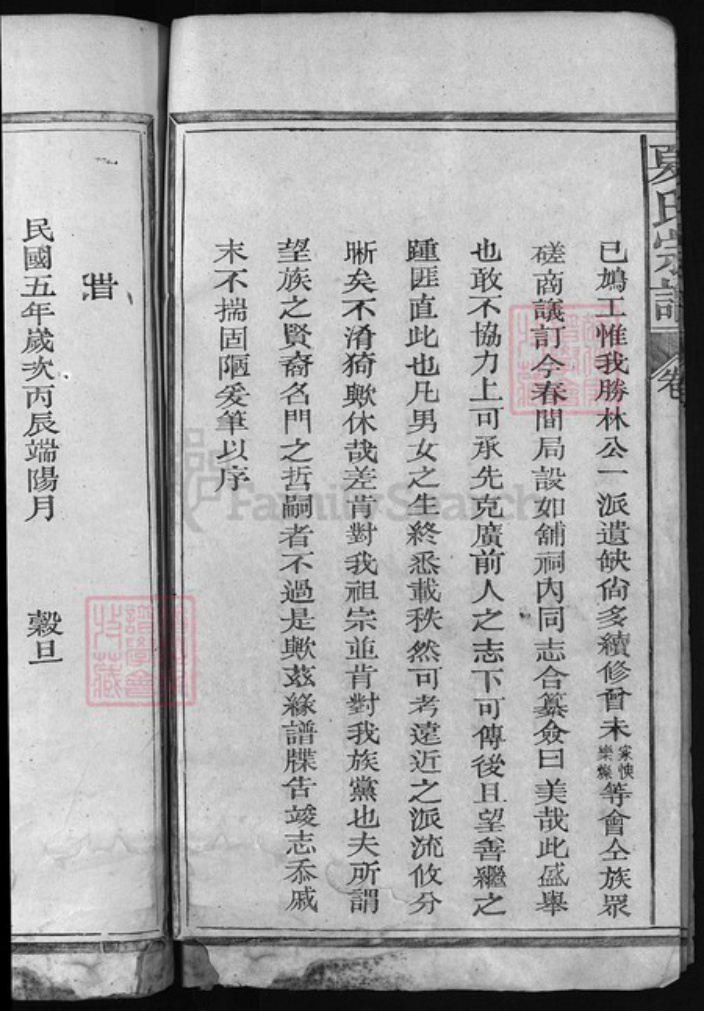 夏氏宗譜 卷
已鳩工惟我勝林公一派遺缺尙多續修曾未家懊樂燦等會仝族眾
磋商議訂今春間局設如舖祠內同志合纂僉曰美哉此盛舉
也敢不協力上可承先克廣前人之志下可傳後且望善繼之
踵匪直此也凡男女之生終悉載秩然可考遠近之派流攸分
晰矣不淆猗歟休哉差肯對我祖宗並肯對我族黨也夫所謂
望族之賢裔名門之哲嗣者不過是歟茲緣譜牒告竣志忝戚
末不揣固陋爰筆以序
旹
民國五年歲次丙辰端陽月 穀旦
FamilySearch